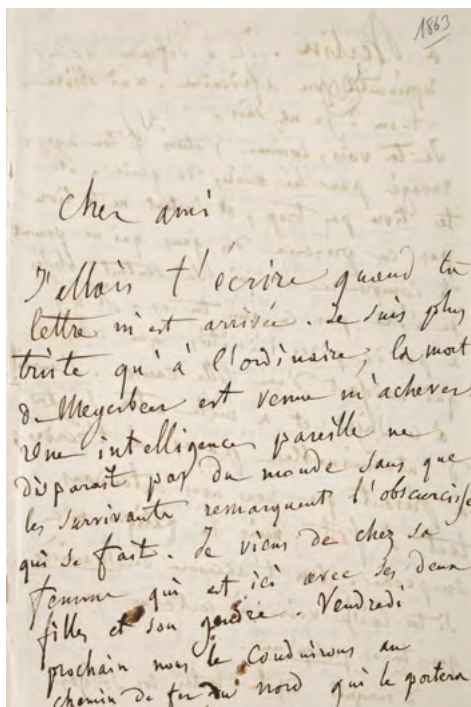 1863
Cher ami
J'allais t'écrire quand ta
lettre m'est arrivée. Je suis plus
triste qu'à l'ordinaire, la mort
de Meyerbeer est venue m'achever.
Une intelligence pareille ne
disparait pas du monde sans que
les survivants remarquent l'obscurcisse
qui se fait. Je viens de chez sa
femme qui est ici avec ses deux
filles et son gendre. Vendredi
prochain nous le conduirons au
chemin de fer du nord qui le portera